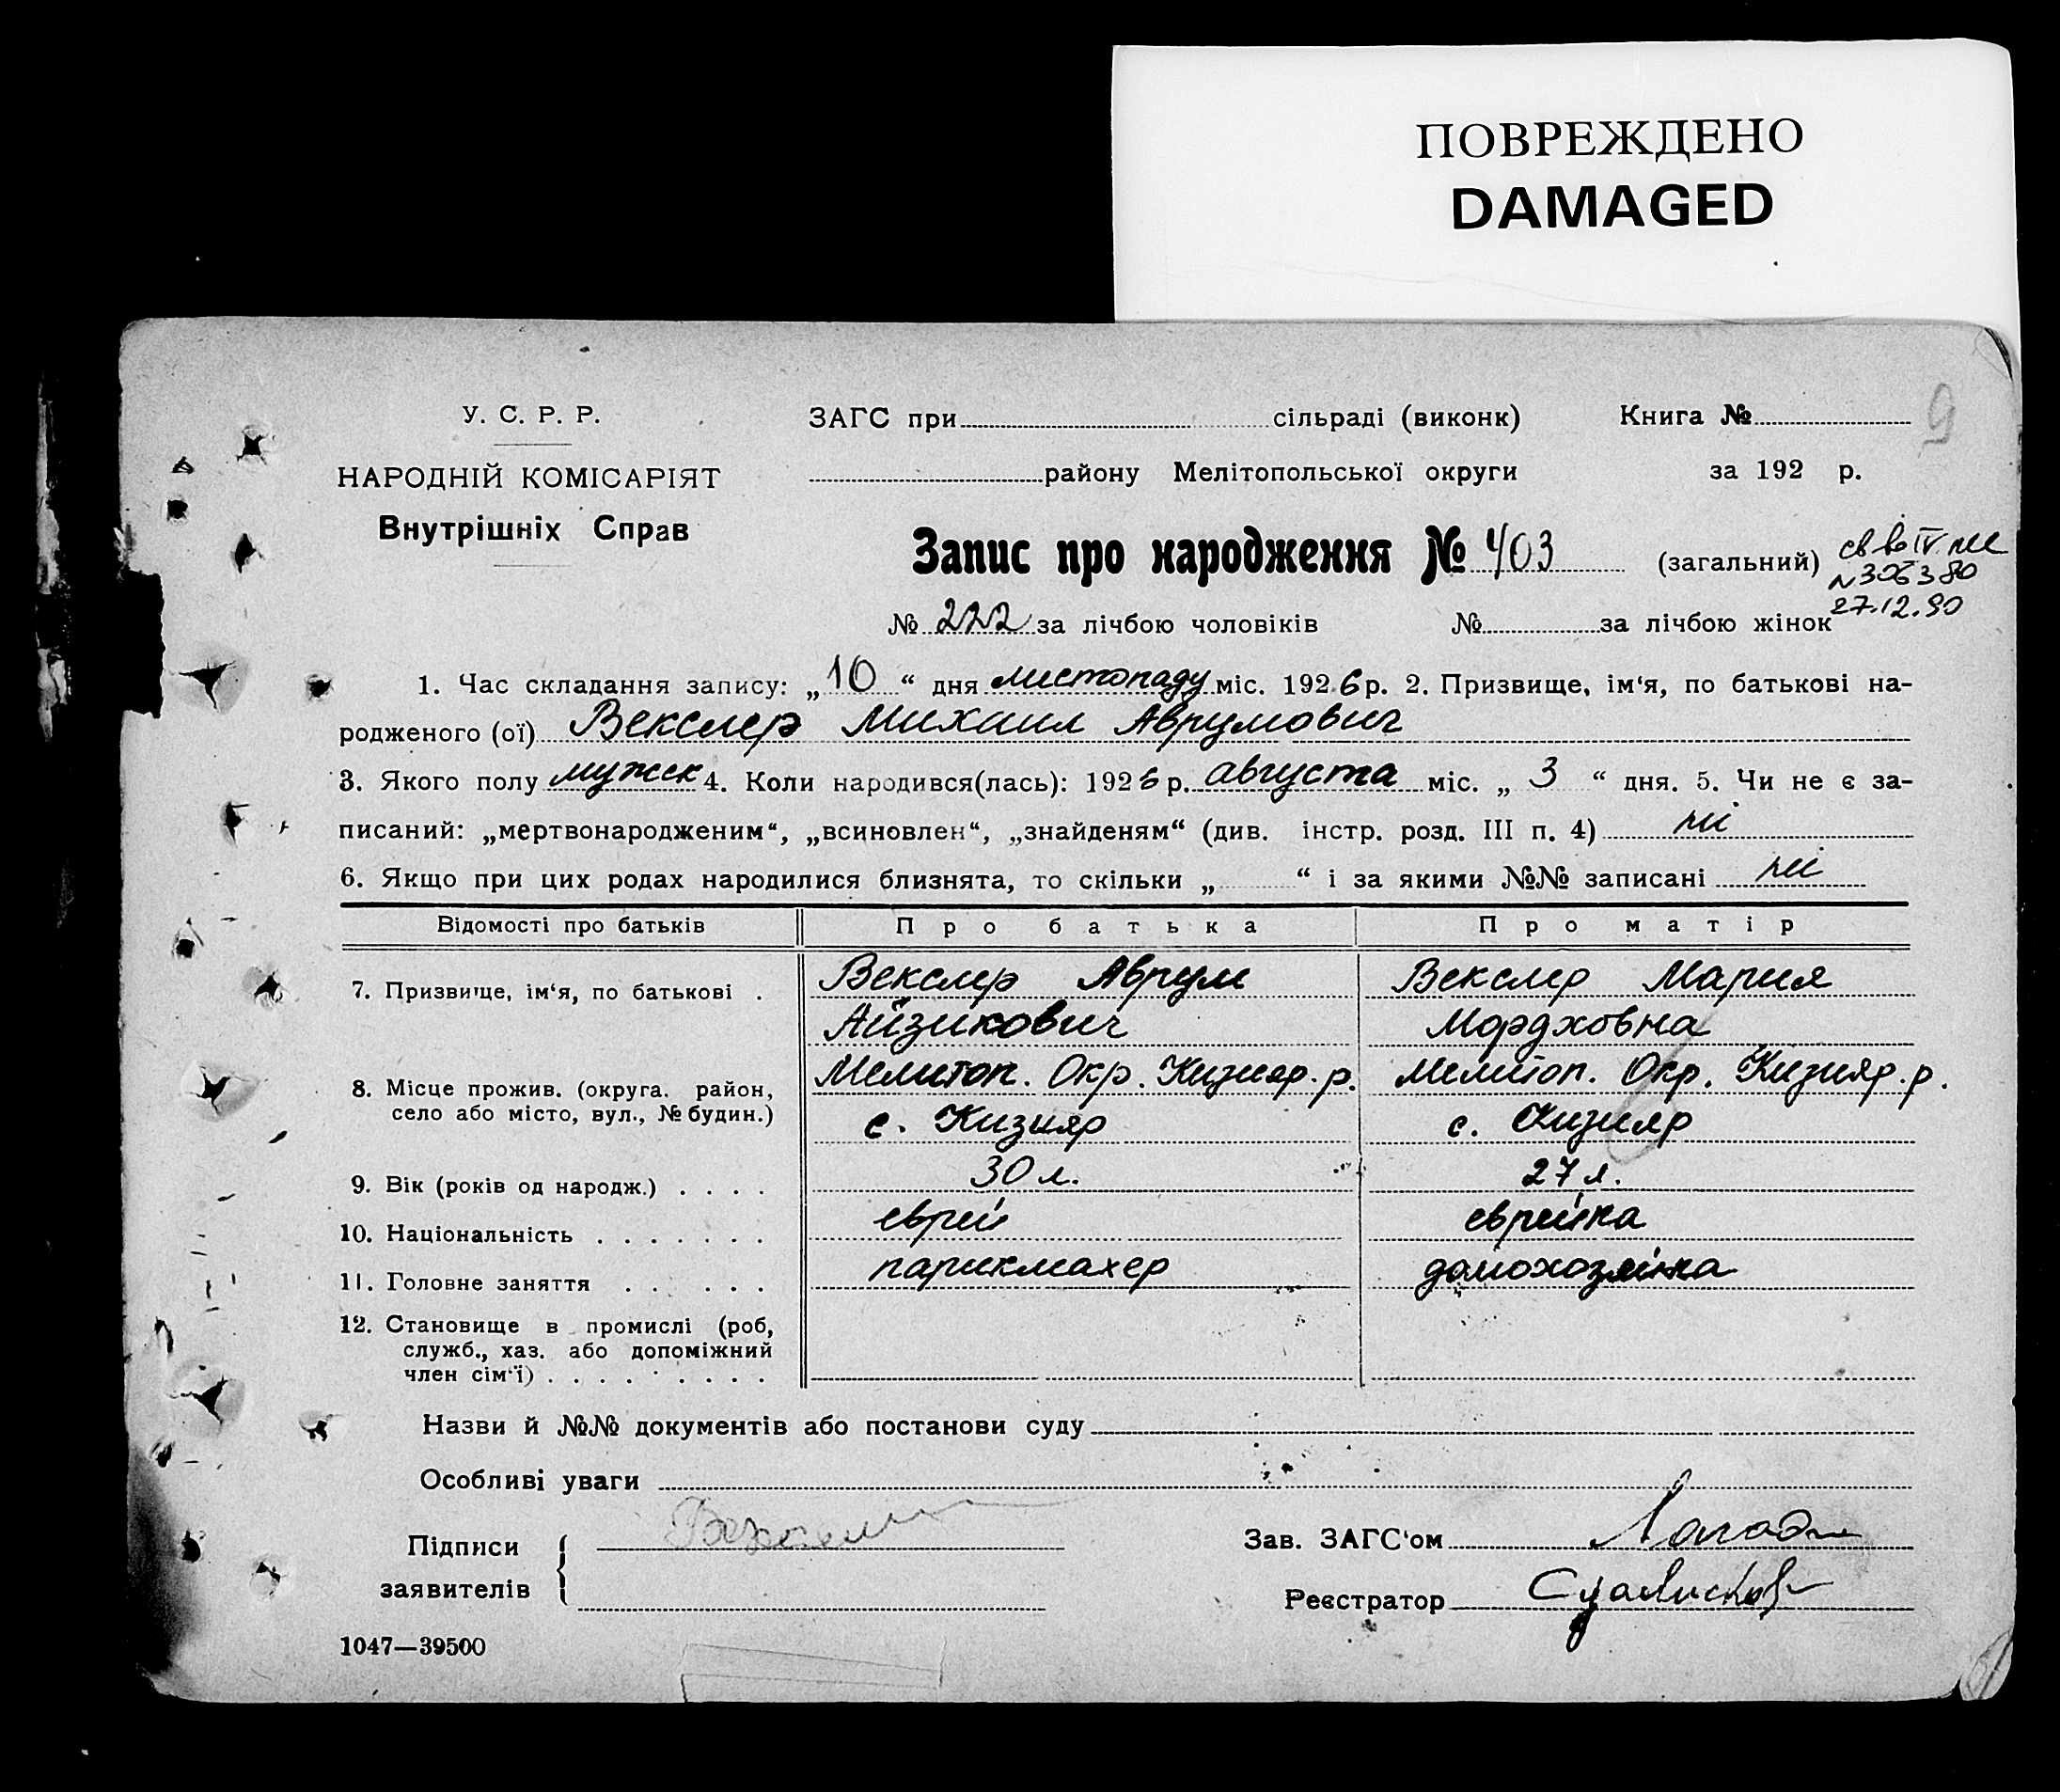 ПОВРЕЖДЕНО
DAMAGED
9
У. С. Р. Р.
НАРОДНІЙ КОМІСАРІЯТ
Внутрішніх Справ
ЗАГС при сільраді (виконк)
району Мелітопольської округи
Книга №
за 192 р.
Запис про народження № 403 (загальний)
№ 222 за лічбою чоловіків № за лічбою жінок
св-во IV
N 306380
27.12.90
1. Час складання запису: „10“ дня листопаду міс. 1926 р. 2. Призвище, ім‘я, по батькові на-
родженого (ої) Векслер Михаил Аврумович
3. Якого полу мужск 4. Коли народився(лась): 1926 р. августа міс. „3“ дня. 5. Чи не є за-
писаний: „мертвонародженим“, „всиновлен“, „знайденям“ (див. інстр. розд. III п. 4) ні
6. Якщо при цих родах народилися близнята, то скільки „ “ і за якими №№ записані ні
Відомості про батьків Про батька Про матір
7. Призвище, ім‘я, по батькові . Векслер Аврум Векслер Мария
Айзикович Мордховна
8. Місце прожив. (округа. район, Мелитоп. Окр. Кизияр. р. Мелитоп. Окр. Кизияр. р.
село або місто, вул., № будин.) с. Кизияр с. Кизияр
9. Вік (років од народж.) . . . . 30 л. 27 л.
10. Національність . . . . . . . еврей еврейка
11. Головне заняття . . . . . парикмахер домохозяйка
12. Становище в промислі (роб,
служб., хаз. або допоміжний
член сім‘ї) . . . . . . . . .
Назви й №№ документів або постанови суду
Особливі уваги
Підписи
заявителів
Зав. ЗАГС‘ом
Реєстратор
1047—39500